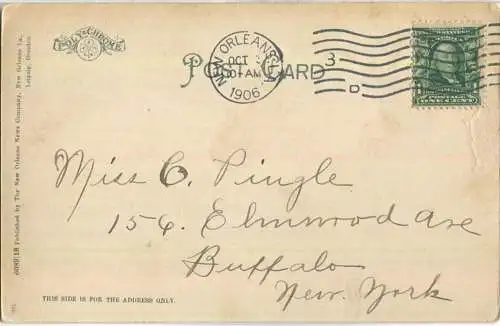 POLY-CHROME
POST CARD
NEW ORLEANS, LA.
OCT
10 AM
1906
3
D
POSTAGE
ONE CENT
Miss C. Pingle
156 Elmwood Ave
Buffalo
New York
THIS SIDE IS FOR THE ADDRESS ONLY.
Published by The New Orleans News Company, New Orleans La., Leipzig, Dresden.